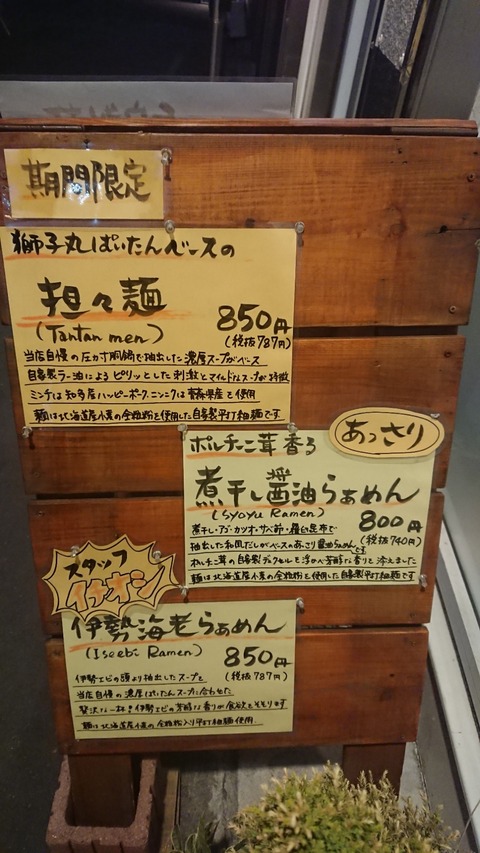 期間限定
獅子丸ぱいたんベースの
担々麺
(Tantan men)
850円
(税抜787円)
当店自慢の圧力寸胴鍋で抽出した濃厚スープがベース
自家製ラー油によるピリッとした刺激とマイルドなスープが特徴
ミンチは知多産ハッピーポーク、ニンニクは青森県産を使用
麺は北海道産小麦の全粒粉を使用した自家製平打細麺です
あっさり
ポルチーニ茸香る
煮干し醤油らぁめん
(Syoyu Ramen)
800円
(税抜740円)
煮干し・アゴ・カツオ・サバ節・羅臼昆布で
抽出した和風だしがベースのあっさり醤油らぁめんです
ポルチーニ茸の自家製デュクセルを浮かべ芳醇な香りを添えました
麺は北海道産小麦の全粒粉を使用した自家製平打細麺です
スタッフ
イチオシ
伊勢海老らぁめん
(Iseebi Ramen)
850円
(税抜787円)
伊勢エビの頭より抽出したスープを
当店自慢の濃厚ぱいたんスープに合わせた
贅沢な一杯!伊勢エビの芳醇な香りが食欲をそそります
麺は北海道産小麦の全粒粉入り平打細麺使用